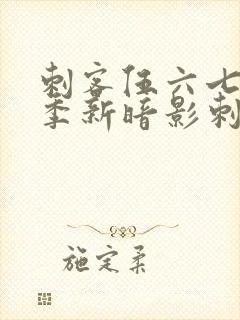 刺客伍六七
季新暗影刺
施定柔